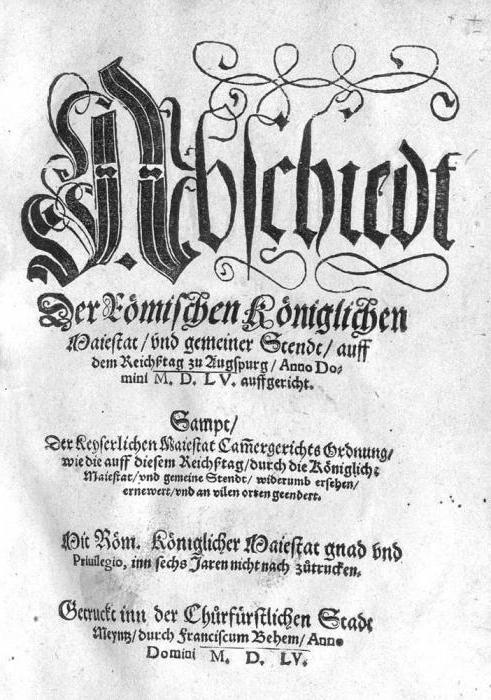 Abschiedt
Der Römischen Königlichen
Maiestat / vnd gemeiner Stendt / auff
dem Reichßtag zu Augspurg / Anno Do-
mini M. D. LV. auffgericht.
Sampt /
Der Keyserlichen Maiestat Cam̃ergerichts Ordnung /
wie die auff diesem Reichßtag / durch die Königliche
Maiestat / vnd gemeine Stendt / widerumb ersehen /
ernewert / vnd an vilen orten geendert.
Mit Röm. Königlicher Maiestat gnad vnd
Priuilegio, inn sechs Jaren nicht nach zůtrucken.
Getruckt inn der Chůrfürstlichen Stadt
Meyntz / durch Franciscum Behem / Anno
Domini M. D. LV.